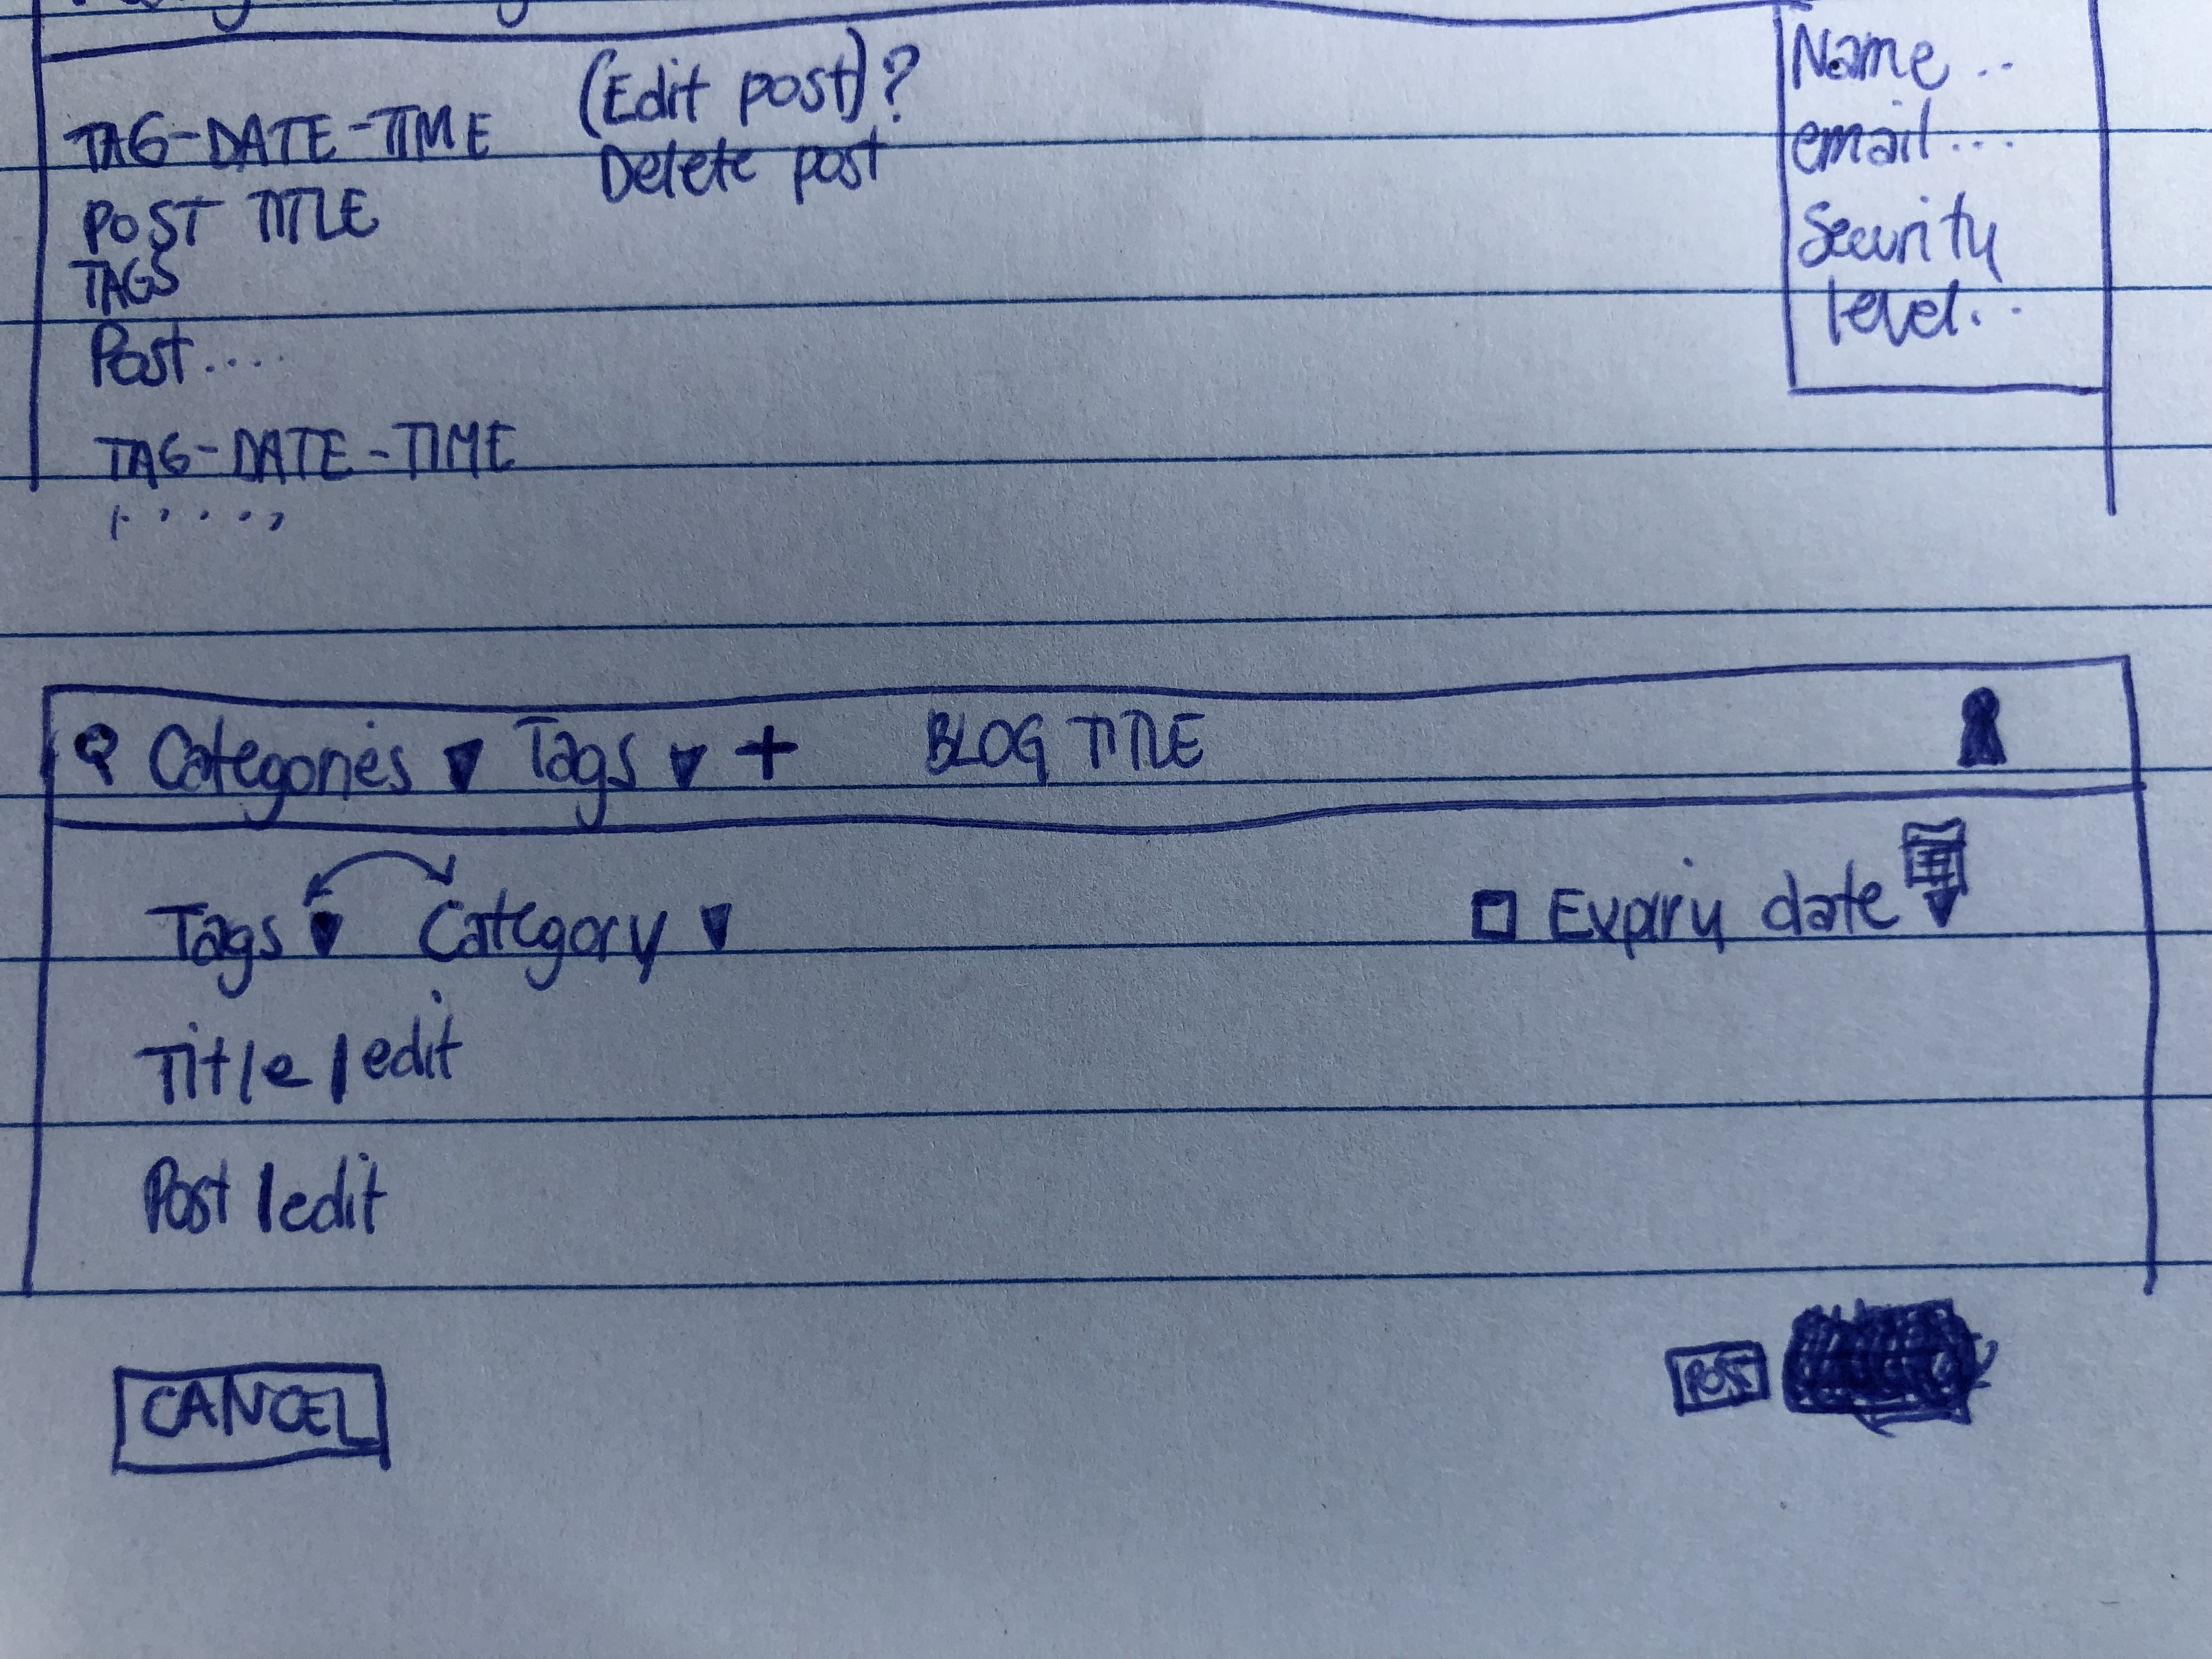 (Edit post)?
TAG-DATE-TIME
Delete post
POST TITLE
TAGS
Post....
TAG-DATE-TIME
.....
Name ..
email...
Security
level...
Categories Tags + BLOG TITLE
Tags Category Expiry date
Title | edit
Post | edit
CANCEL
POST